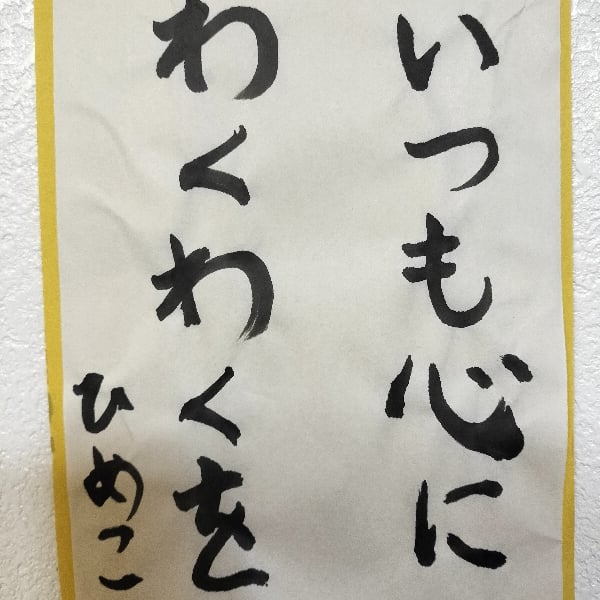 いつも心に
わくわくを
ひめこ